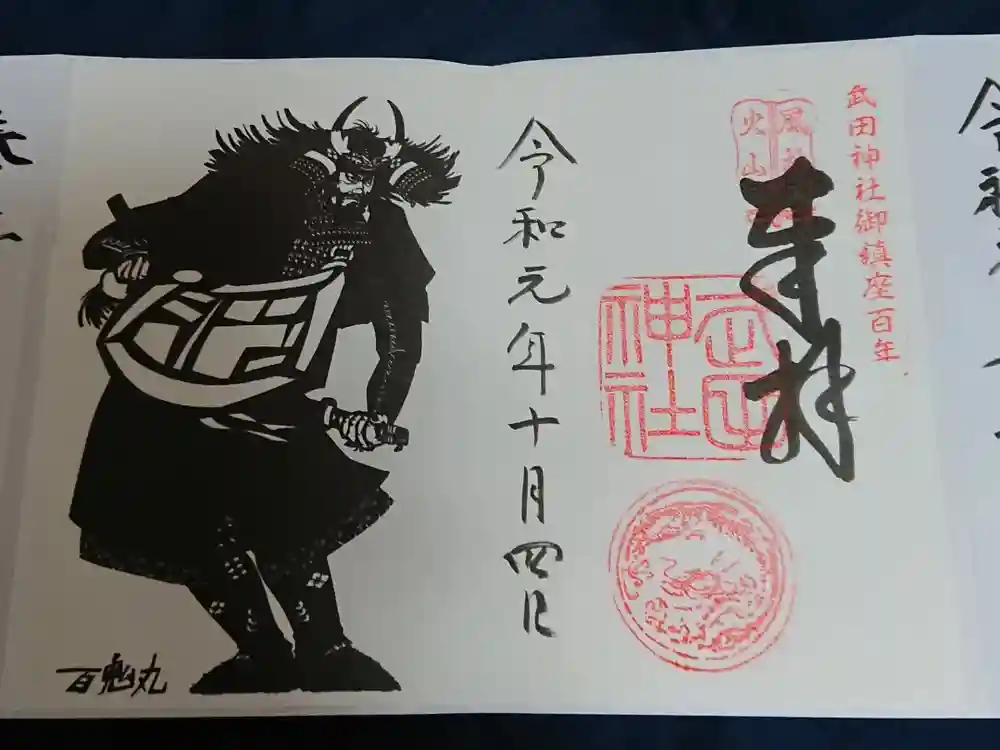 武田神社御鎮座百年
風林
火山
奉拝
武田
神社
令和元年十月四日
百鬼丸